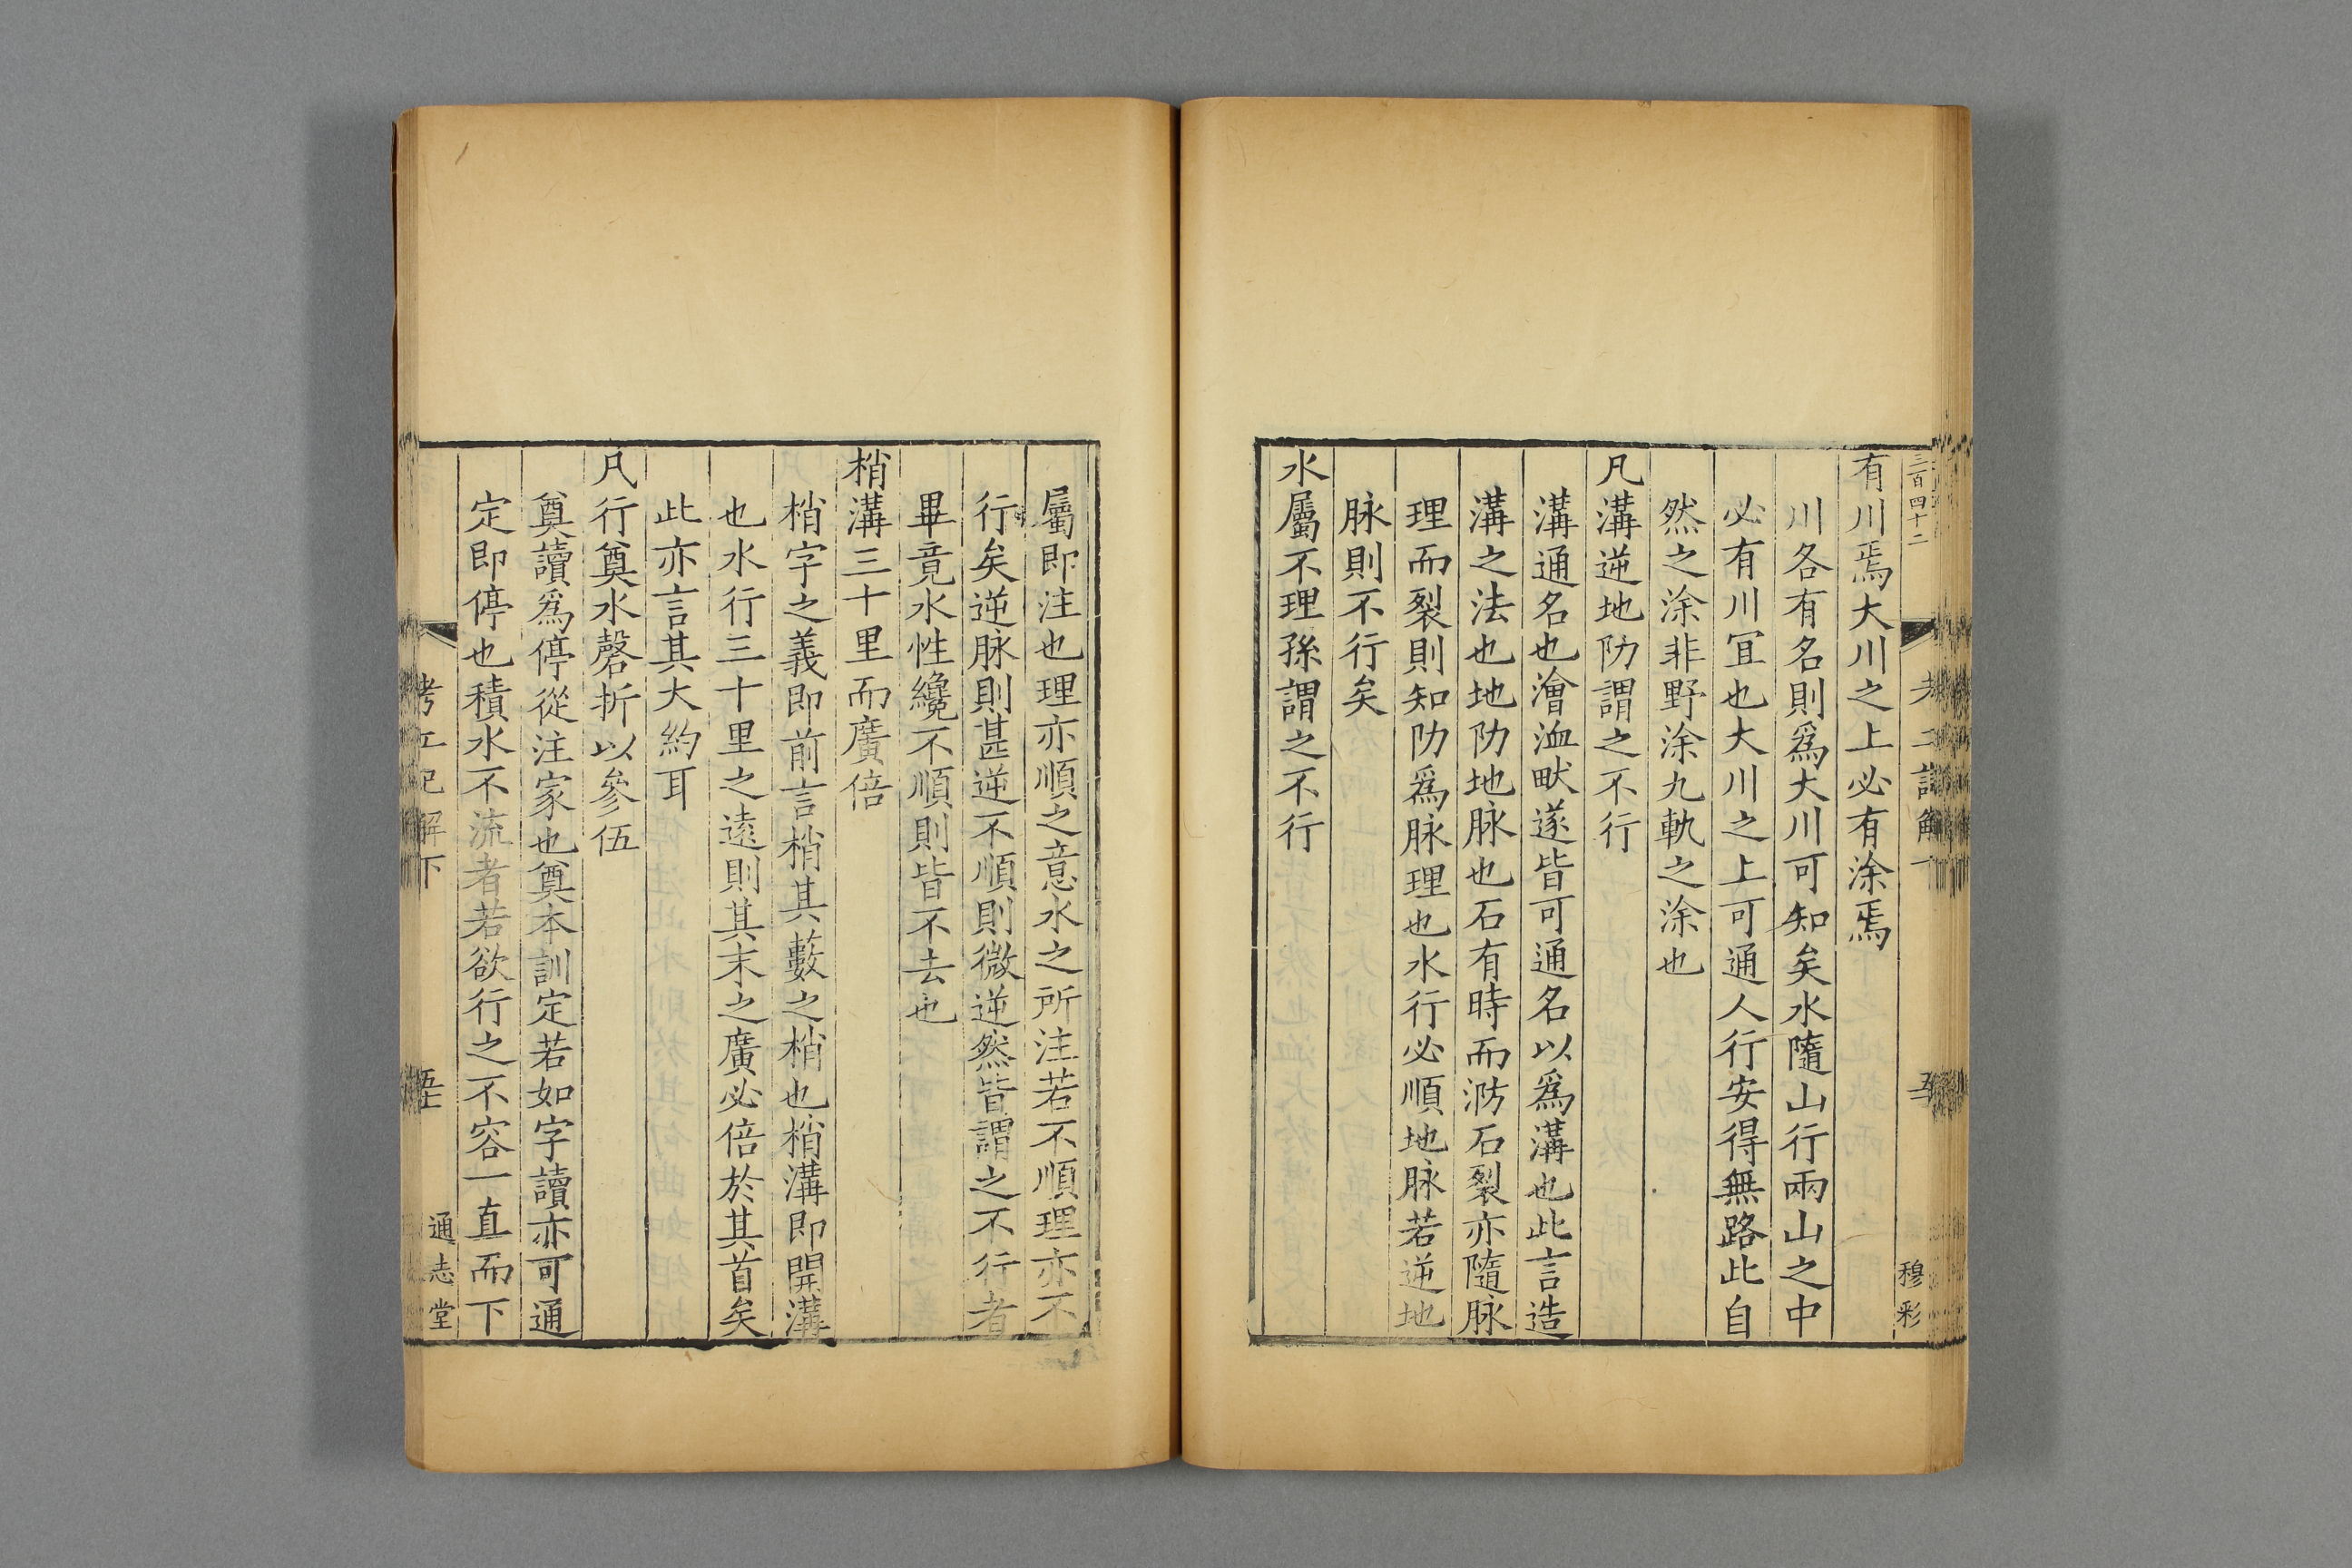 三百四十二
穆彩
有川焉大川之上必有涂焉
川各有名則爲大川可知矣水隨山行兩山之中
必有川冝也大川之上可通人行安得無路此自
然之涂非野涂九軌之涂也
凡溝逆地阞謂之不行
溝通名也澮洫畎遂皆可通名以爲溝也此言造
溝之法也地阞地脉也石有時而泐石裂亦隨脉
理而裂則知阞爲脉理也水行必順地脉若逆地
脉則不行矣
水屬不理孫謂之不行
屬即注也理亦順之意水之所注若不順理亦不
行矣逆脉則甚逆不順則微逆然皆謂之不行者
畢竟水性纔不順則皆不去也
梢溝三十里而廣倍
梢字之義即前言梢其藪之梢也梢溝即開溝
也水行三十里之遠則其末之廣必倍於其首矣
此亦言其大約耳
凡行奠水磬折以參伍
奠讀爲停從注家也奠本訓定若如字讀亦可通
定即停也積水不流者若欲行之不容一直而下
考工記解下
通志堂